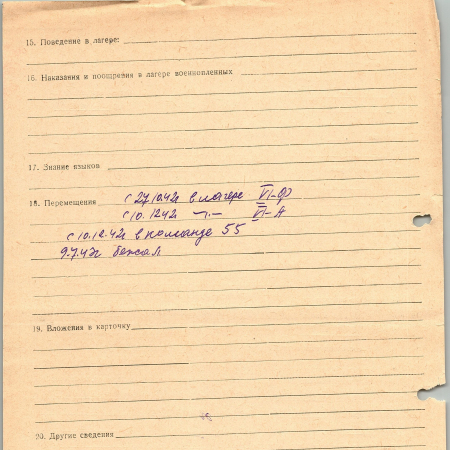 15. Поведение в лагере:
16. Наказания и поощрения в лагере военнопленных
17. Знание языков
18. Перемещения с 27.10.42г в лагере VI-Ф
с 10.12.42г –"– VI-А
с 10.12.42г в команде 55
9.7.43г бежал
19. Вложения в карточку
20. Другие сведения